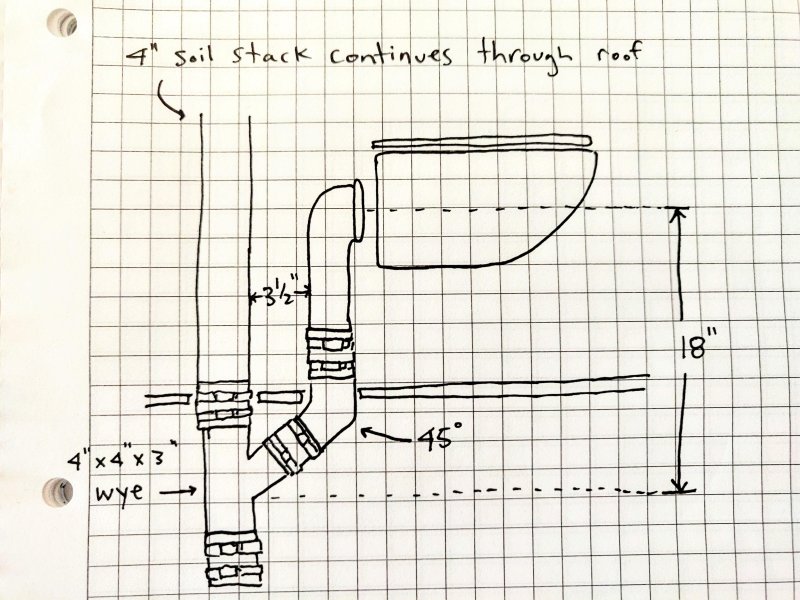 4" soil stack continues through roof
3½"
18"
45°
4"x4"x3"
wye